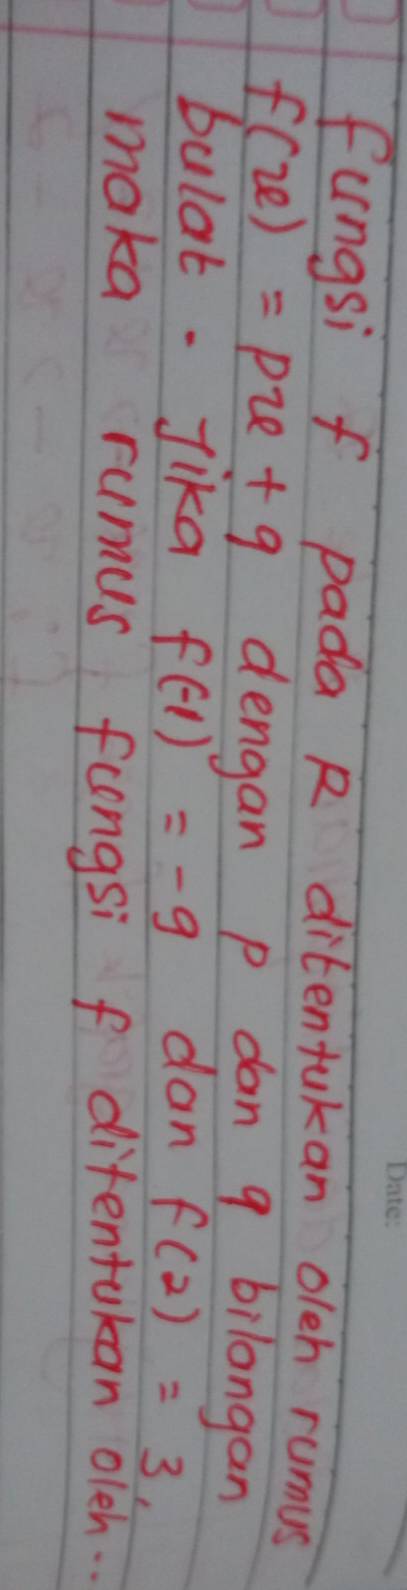 Date:
fungsi f pada R ditentukan oleh rumus
f(x) = px + q dengan p dan q bilangan
bulat. Jika f(-1) = -9 dan f(2) = 3,
maka rumus fungsi f ditentukan oleh...